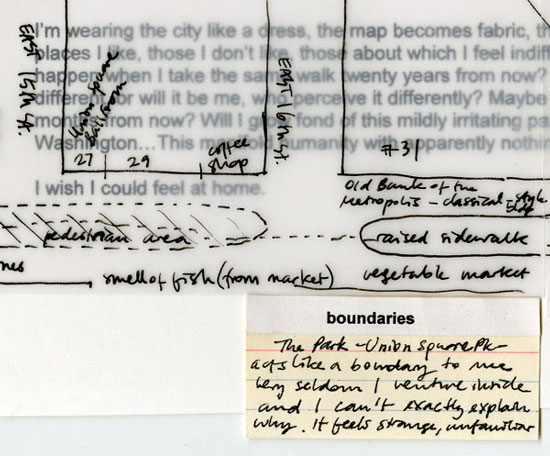 I'm wearing the city like a dress, the map becomes fabric, th
places I like, those I don't like, those about which I feel indiff
happen when I take the same walk twenty years from now?
different or will it be me, who perceive it differently? Maybe
months from now? Will I grow fond of this mildly irritating pa
Washington... This manifold humanity with apparently nothin
I wish I could feel at home.
EAST 15th St.
Union Square
Ballroom
27
29
coffee
shop
EAST 16th St.
#31
Old Bank of the
Metropolis - classical - style
pedestrian area
raised sidewalk
nes
smell of fish (from market)
vegetable market
boundaries
The Park - Union Square Pk -
acts like a boundary to me
very seldom I venture inside
and I can't exactly explain
why. It feels strange, unfamiliar